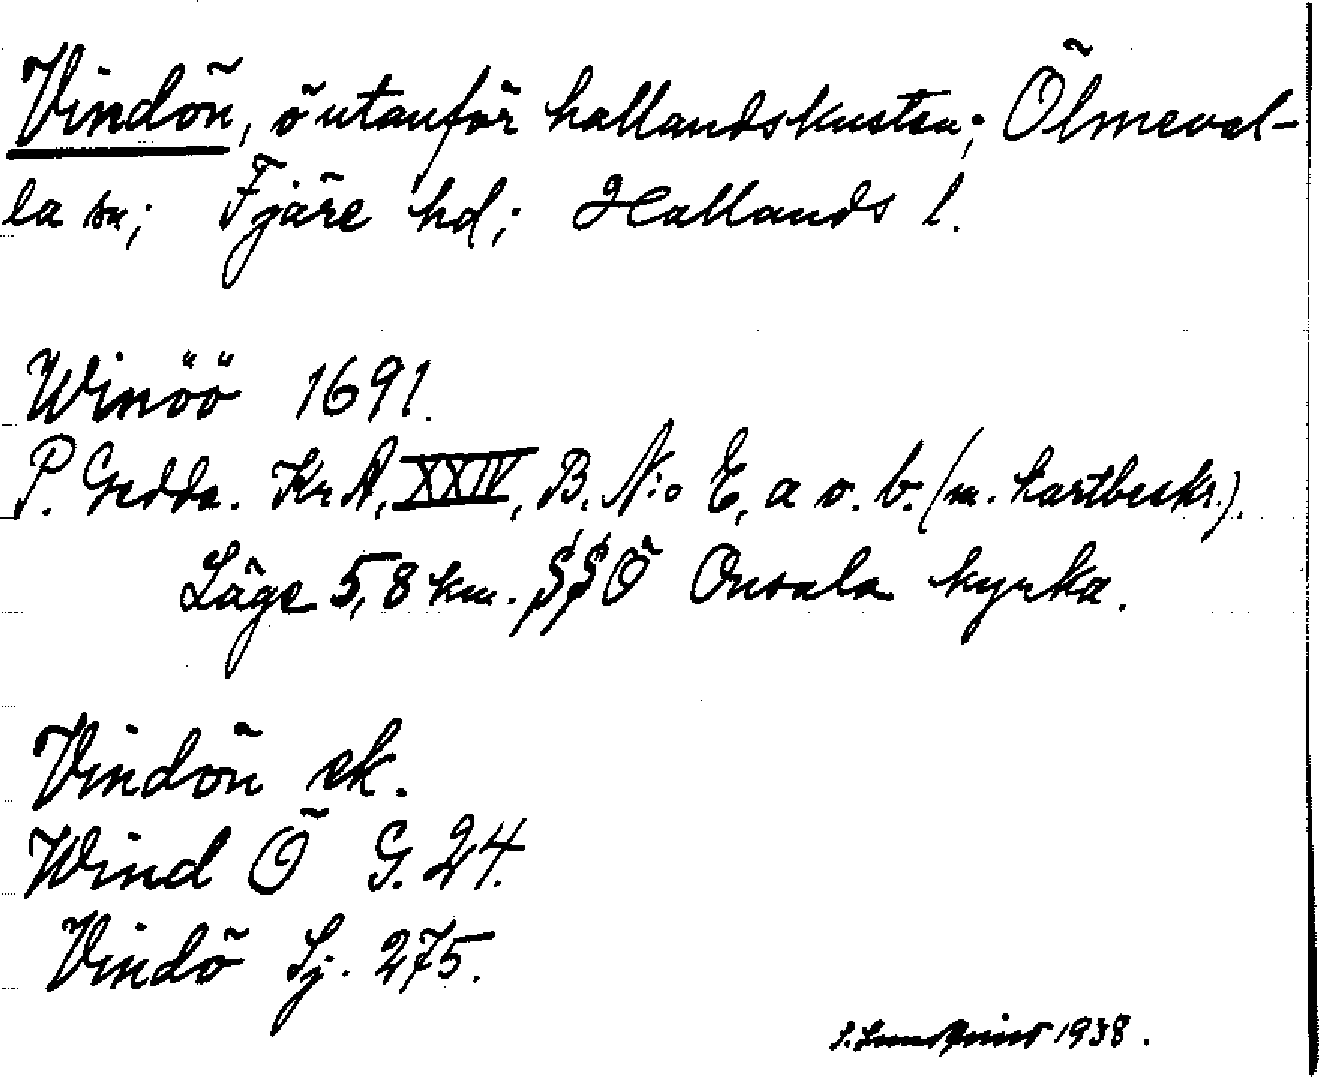 Vindön, ö utanför hallandskusten; Ölmeval-
la sn; Fjäre hd; Hallands l.
Winöö 1691.
P. Gedda. Kr A, XXIV, B. N:o E, a o. b. (m. kartbeskr.).
Läge 5,8 km. SSÖ Onsala kyrka.
Vindön ek.
Wind Ö G. 24.
Vindö Sj. 275.
S. Lundqvist 1938.